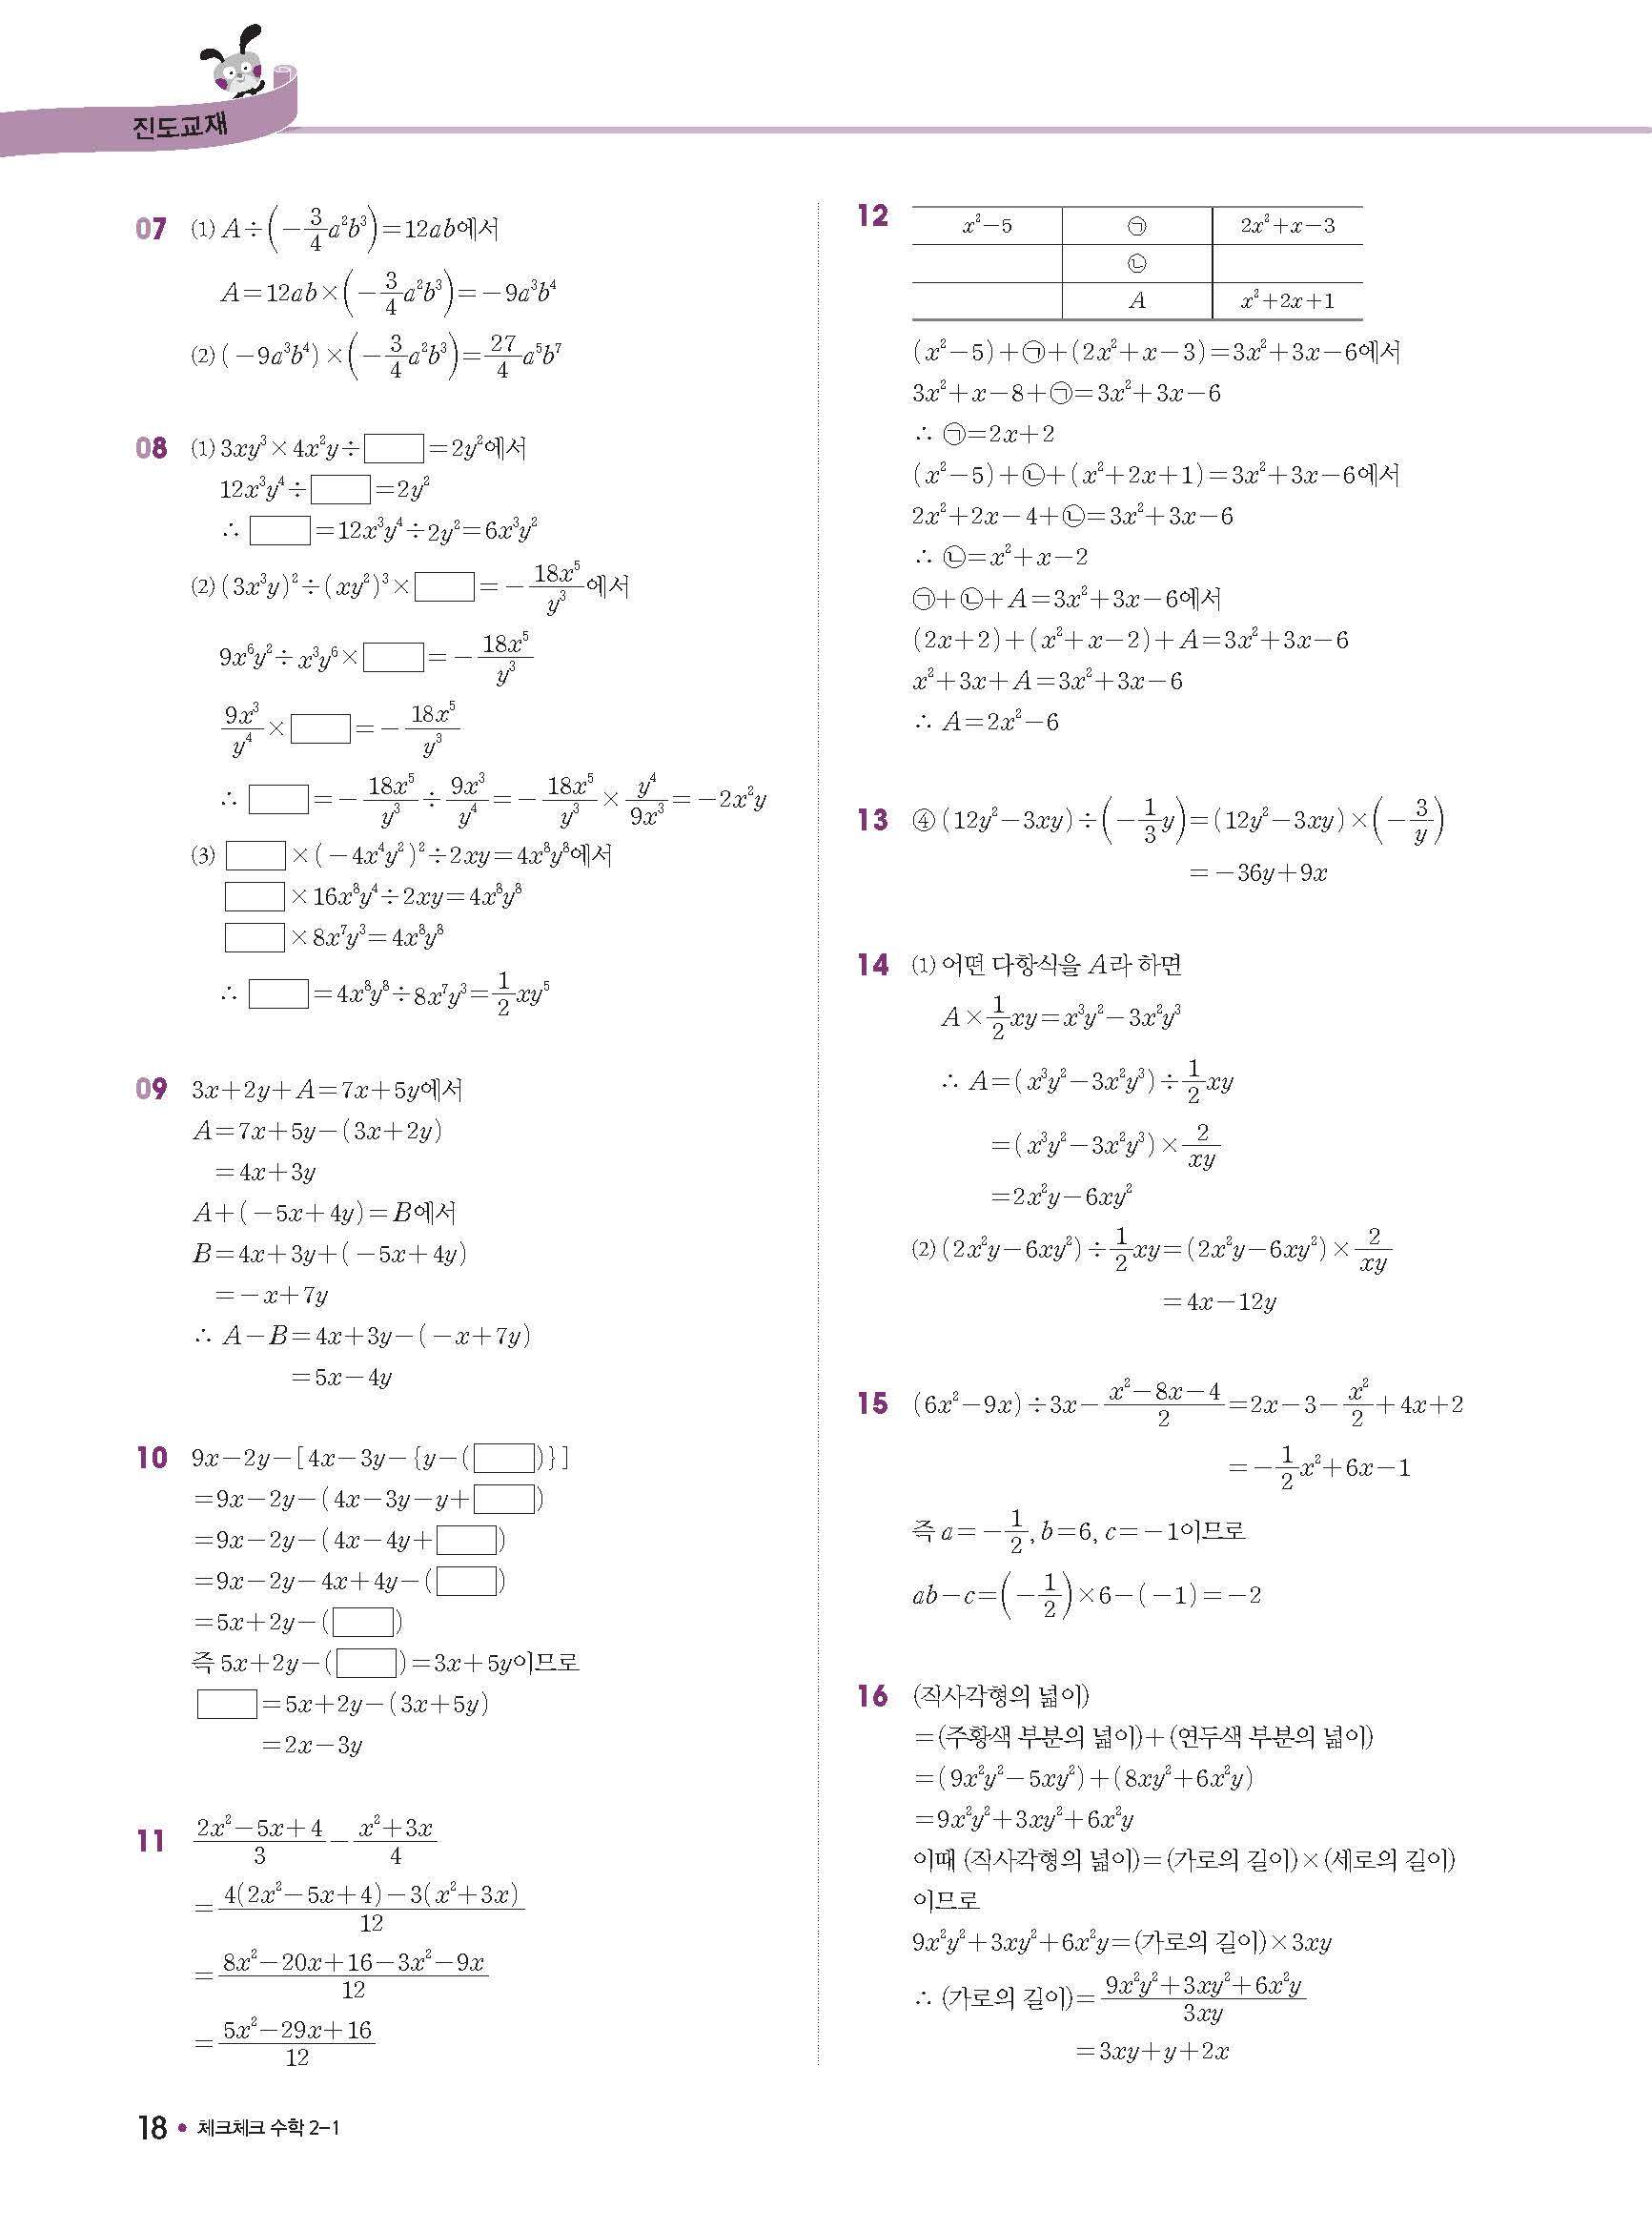 진도교재
07 (1) A÷(-3/4 a²b³)=12ab에서
A=12ab×(-3/4 a²b³)=-9a³b⁴
(2) (-9a³b⁴)×(-3/4 a²b³)=27/4 a⁵b⁷
08 (1) 3xy³×4x²y÷□=2y²에서
12x³y⁴÷□=2y²
∴ □=12x³y⁴÷2y²=6x³y²
(2) (3x³y)²÷(xy²)³×□=-18x⁵/y³에서
9x⁶y²÷x³y⁶×□=-18x⁵/y³
9x³/y⁴×□=-18x⁵/y³
∴ □=-18x⁵/y³÷9x³/y⁴=-18x⁵/y³×y⁴/9x³=-2x²y
(3) □×(-4x⁴y²)²÷2xy=4x⁸y⁸에서
□×16x⁸y⁴÷2xy=4x⁸y⁸
□×8x⁷y³=4x⁸y⁸
∴ □=4x⁸y⁸÷8x⁷y³=1/2 xy⁵
09 3x+2y+A=7x+5y에서
A=7x+5y-(3x+2y)
=4x+3y
A+(-5x+4y)=B에서
B=4x+3y+(-5x+4y)
=-x+7y
∴ A-B=4x+3y-(-x+7y)
=5x-4y
10 9x-2y-[4x-3y-{y-(□)}]
=9x-2y-(4x-3y-y+□)
=9x-2y-(4x-4y+□)
=9x-2y-4x+4y-(□)
=5x+2y-(□)
즉 5x+2y-(□)=3x+5y이므로
□=5x+2y-(3x+5y)
=2x-3y
11 (2x²-5x+4)/3-(x²+3x)/4
=(4(2x²-5x+4)-3(x²+3x))/12
=(8x²-20x+16-3x²-9x)/12
=(5x²-29x+16)/12
12 x²-5 ㉠ 2x²+x-3
㉡
A x²+2x+1
(x²-5)+㉠+(2x²+x-3)=3x²+3x-6에서
3x²+x-8+㉠=3x²+3x-6
∴ ㉠=2x+2
(x²-5)+㉡+(x²+2x+1)=3x²+3x-6에서
2x²+2x-4+㉡=3x²+3x-6
∴ ㉡=x²+x-2
㉠+㉡+A=3x²+3x-6에서
(2x+2)+(x²+x-2)+A=3x²+3x-6
x²+3x+A=3x²+3x-6
∴ A=2x²-6
13 ④ (12y²-3xy)÷(-1/3 y)=(12y²-3xy)×(-3/y)
=-36y+9x
14 (1) 어떤 다항식을 A라 하면
A×1/2 xy=x³y²-3x²y³
∴ A=(x³y²-3x²y³)÷1/2 xy
=(x³y²-3x²y³)×2/xy
=2x²y-6xy²
(2) (2x²y-6xy²)÷1/2 xy=(2x²y-6xy²)×2/xy
=4x-12y
15 (6x²-9x)÷3x-(x²-8x-4)/2=2x-3-x²/2+4x+2
=-1/2 x²+6x-1
즉 a=-1/2, b=6, c=-1이므로
ab-c=(-1/2)×6-(-1)=-2
16 (직사각형의 넓이)
=(주황색 부분의 넓이)+(연두색 부분의 넓이)
=(9x²y²-5xy²)+(8xy²+6x²y)
=9x²y²+3xy²+6x²y
이때 (직사각형의 넓이)=(가로의 길이)×(세로의 길이)
이므로
9x²y²+3xy²+6x²y=(가로의 길이)×3xy
∴ (가로의 길이)=(9x²y²+3xy²+6x²y)/3xy
=3xy+y+2x
18 • 체크체크 수학 2-1